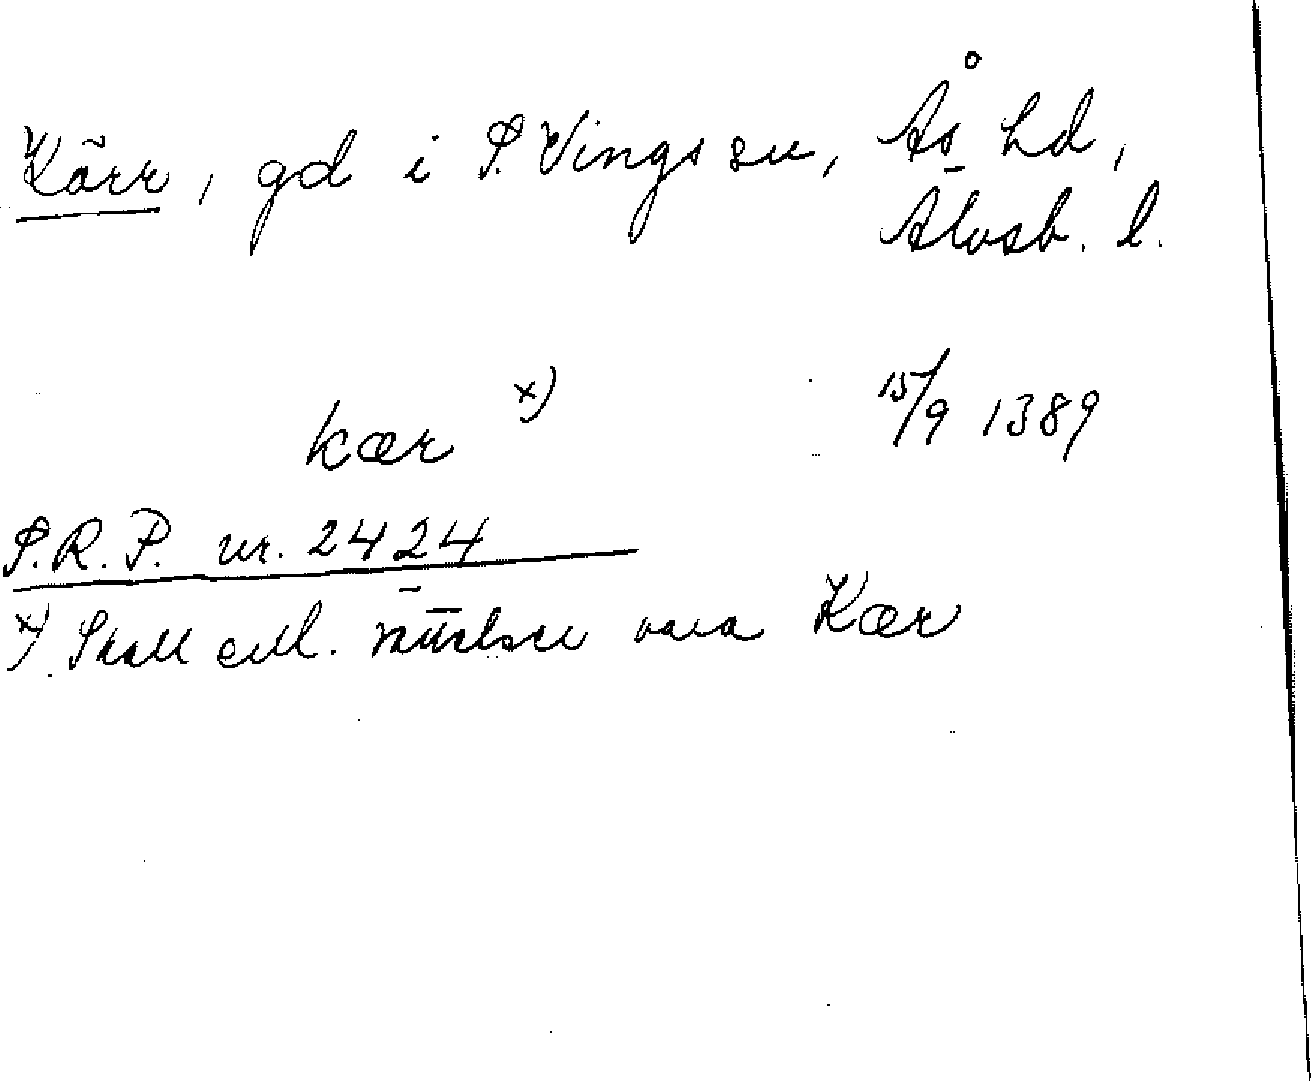 Kärr, gd i S. Vings sn, Ås hd,
Älvsb. l.
kær x) 15/9 1389
S.R.P. nr. 2424
x) Skall enl. rättelse vara Kær